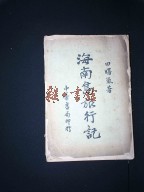 田曙嵐著
海南島旅行記
中華書局印行